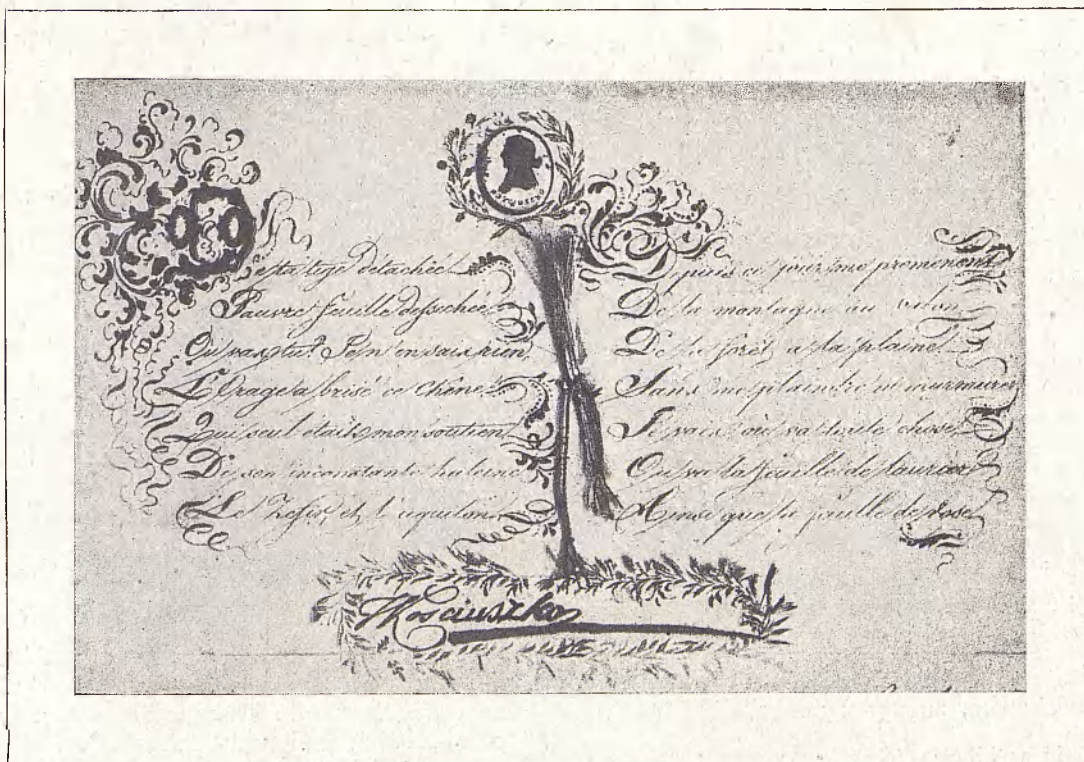 De ta tige détachée
Pauvre feuille dessechée
Ou vas tu? Je n'en sais rien,
L'Orage a brisé ce Chêne
Qui seul etait mon soutien
De son inconstante haleine
Le Zefir, et l'aquilon
Depuis ce jour me promenent
De la montagne au valon
De la forêt a la plaine
Sans me plaindre ni murmurer
Je vais où va toute chose
Ou va la feuille de laurier
Ainsi que la feuille de rose
TKosciuszko